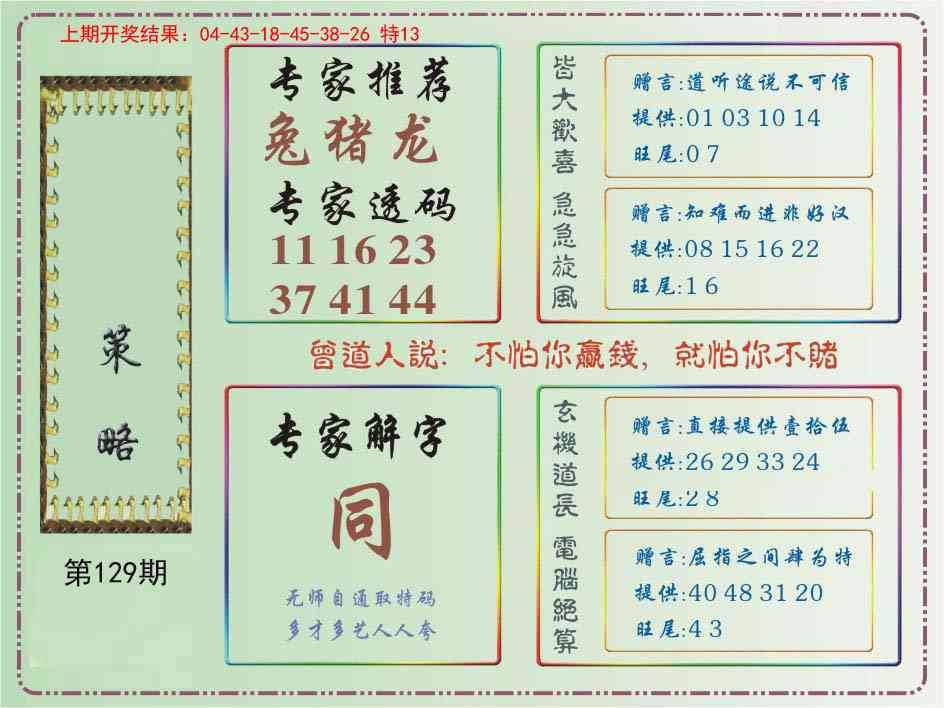 上期开奖结果：04-43-18-45-38-26 特13
策略
第129期
专家推荐
兔猪龙
专家透码
11 16 23
37 41 44
皆大歡喜
赠言:道听途说不可信
提供:01 03 10 14
旺尾:0 7
急急旋風
赠言:知难而进非好汉
提供:08 15 16 22
旺尾:1 6
曾道人説：不怕你贏錢，就怕你不賭
专家解字
同
无师自通取特码
多才多艺人人夸
玄機道長
赠言:直接提供壹拾伍
提供:26 29 33 24
旺尾:2 8
電腦絕算
赠言:屈指之间肆为特
提供:40 48 31 20
旺尾:4 3